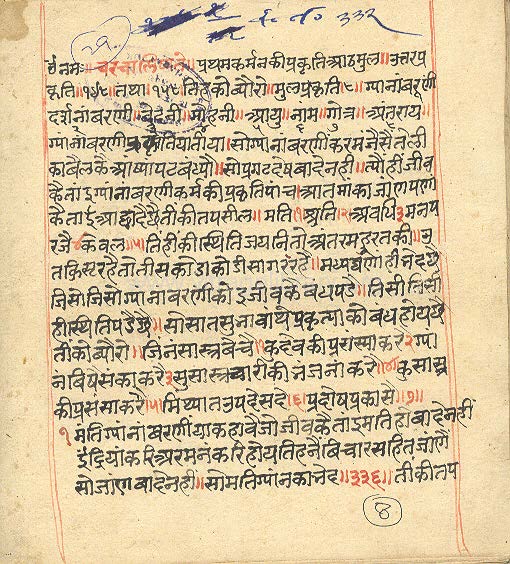 ३३२
र्दनमः चरचालिष्यते॥ प्रथम कर्मनकी प्रकृति आठमुल॥ उत्तरप्र
कृति॥१४८॥ तथा॥१५८॥ तिहको ब्यौरो॥ मुलप्रकृति॥८॥ ग्पानांबरणी
दर्शनांबरणी॥ बेदनी॥ मोहनी॥ आयु॥ नाम॥ गोत्र॥ अंतराय॥
ग्पांनांबरणी प्रकृति सोग्पांनांबरणी करम नैसै तेली
का बैलकै आष्यां पाट बंध्यौ॥ सो प्रगट देषबा दे नही॥ त्यौंही जीव
कैतांइ ग्पांनांबरणी कर्मकी प्रकृति पांच॥ आतमाका जांणपणां
कैतांई आछादै छै तींकी तपसील॥ मति॥१॥ श्रुति॥२॥ अवधि॥३॥ मनप
रजै॥४॥ केवल॥५॥ तिंहीकी स्थिति जघनि तो अंतरमहुरतकी॥ उ
तकिस्ट रहै तो तीस कोडाकोडी सागर रहै॥
जिसो जिसो ग्पानांबरणीको इ जीवकै बंध पडै॥ तिसी तिसी
ही स्थिति पडै छै॥ सो सात सुनावाथे प्रकृत्यांको बंध होय छै
तींको ब्यौरो॥ जिंन सास्त्र बेचे॥१॥ कुदेवकी प्रसंसा करै॥२॥ ग्पां
नाबिषै संका करै॥३॥ सुसास्त्र चारीकी नजना करै॥४॥ कुसास्त्र
की प्रसंसा करै॥५॥ मिथ्यात उपदेस दे॥६॥ प्रदोष प्रकासै॥७॥
१ मतिग्पांनांबरणी छै जो जीवकै तांइ मति होबा दे नहीं
इंद्रियां करि अर मन करि होय तिहनै बिचार सहित जांणै
सो जांणबा दे नही॥ सो मतिग्पांनका नेद॥३३६॥ तींकी तप
४